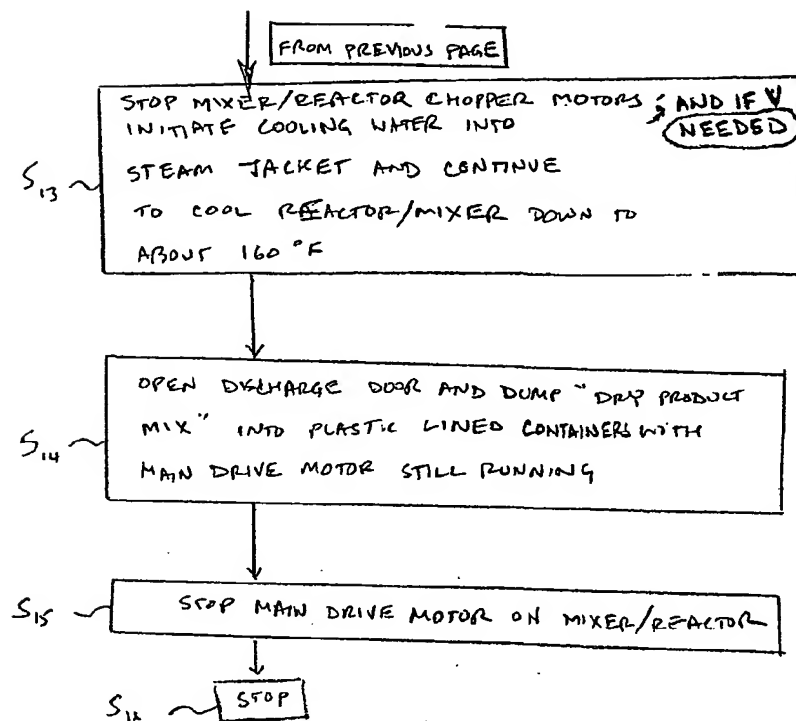 FROM PREVIOUS PAGE
STOP MIXER/REACTOR CHOPPER MOTORS; AND IF
NEEDED
INITIATE COOLING WATER INTO
S13
STEAM JACKET AND CONTINUE
TO COOL REACTOR/MIXER DOWN TO
ABOUT 160 °F
OPEN DISCHARGE DOOR AND DUMP "DRY PRODUCT
S14
MIX" INTO PLASTIC LINED CONTAINERS WITH
MAIN DRIVE MOTOR STILL RUNNING
S15
STOP MAIN DRIVE MOTOR ON MIXER/REACTOR
STOP